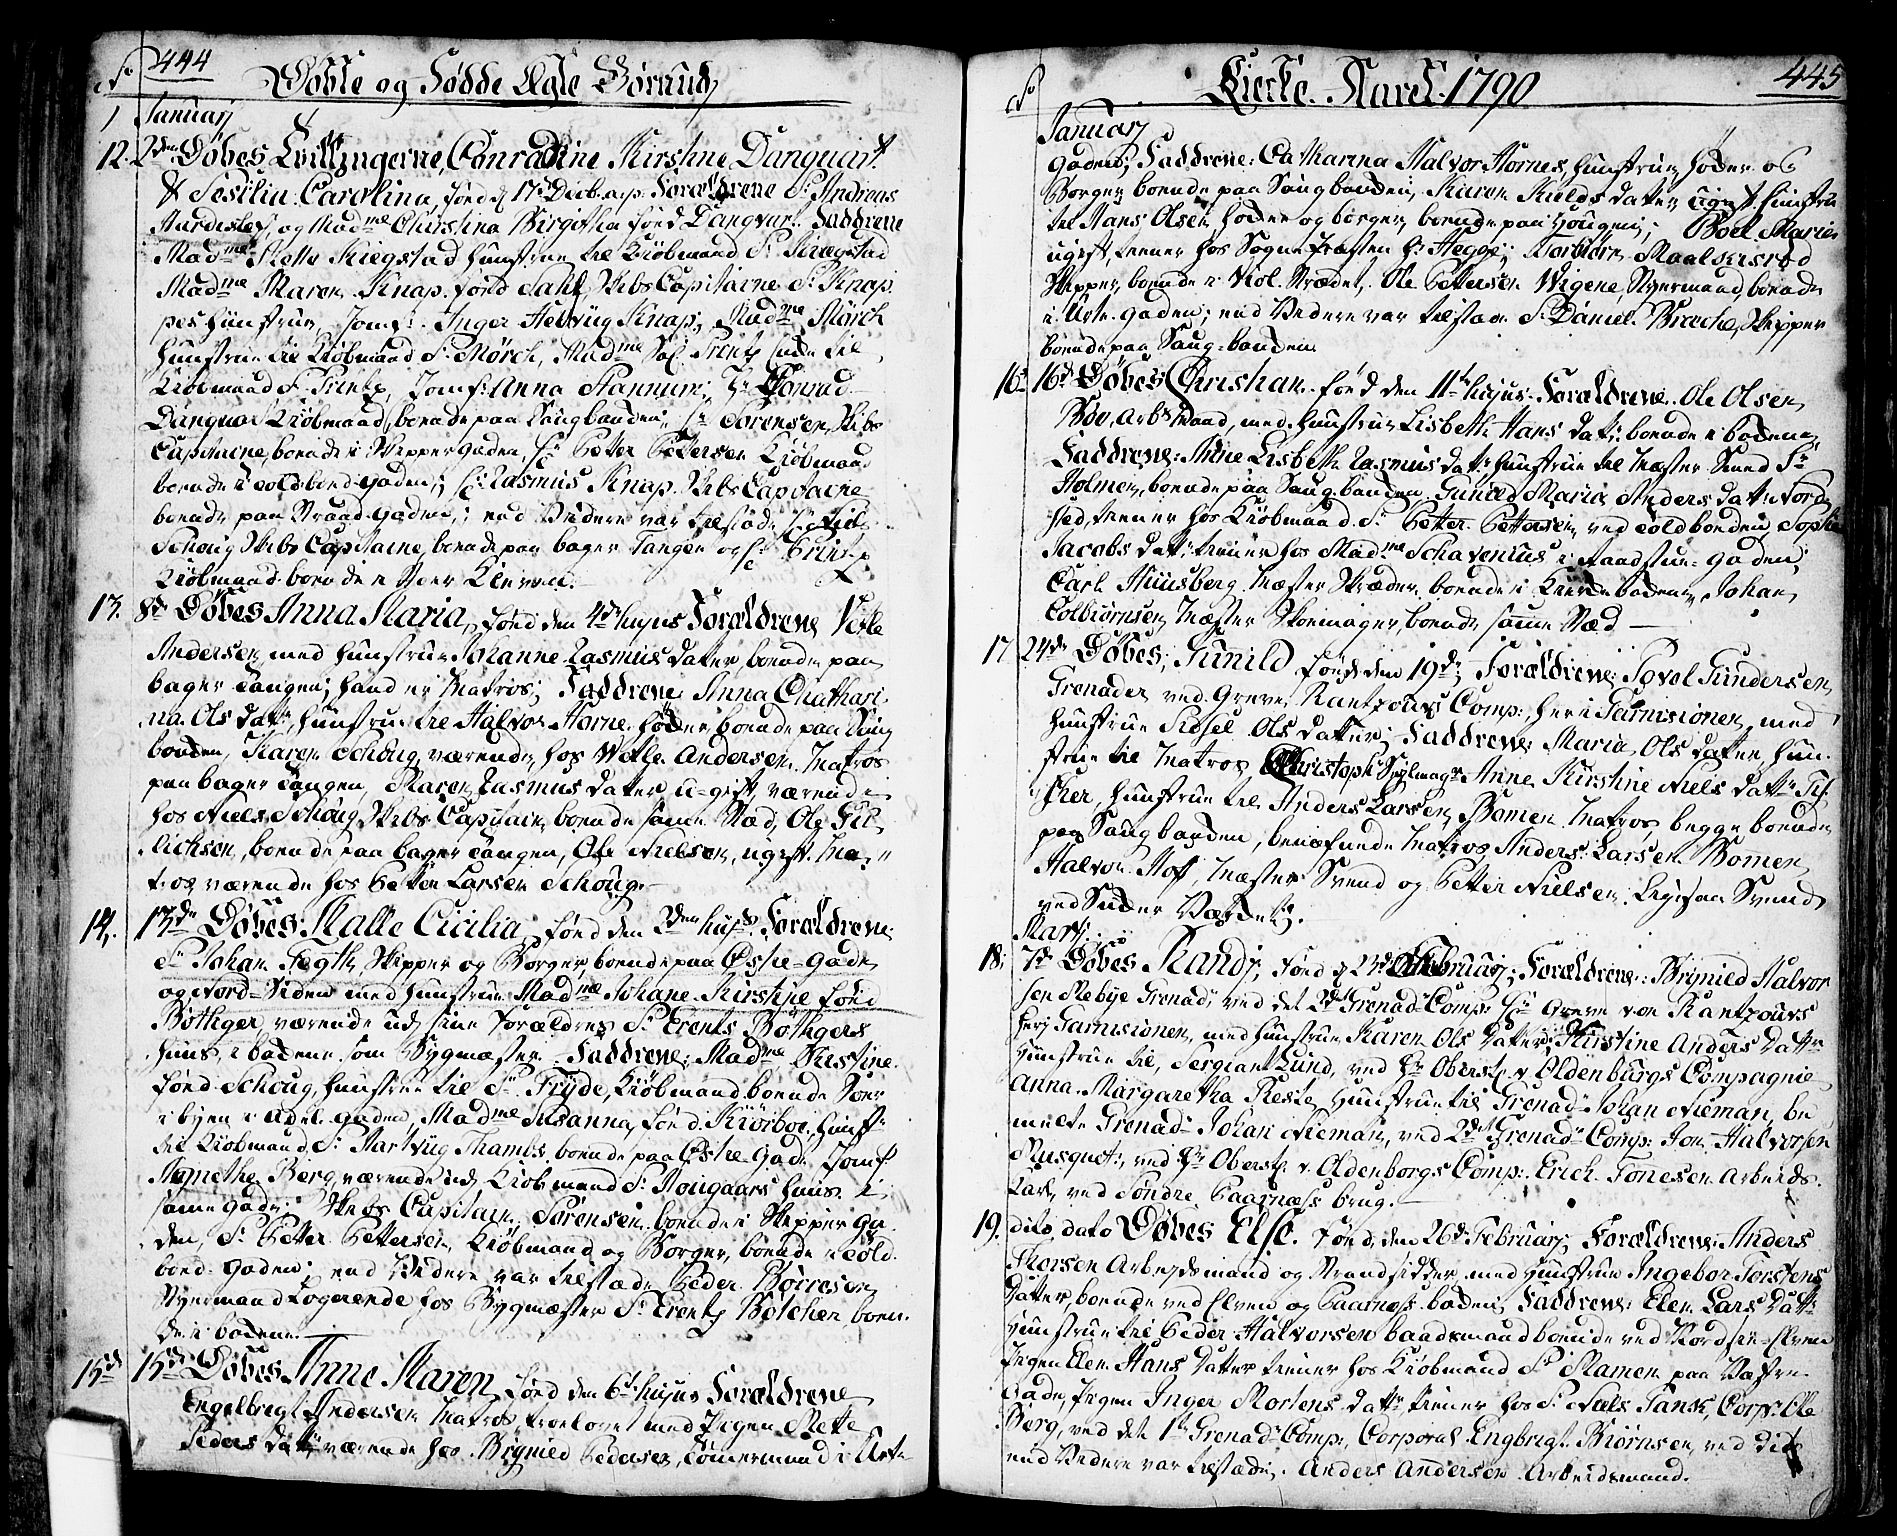 444
Døbte og Fødde Ægte Børn udj
No
1 Januarj
12. 2den Døbes Tvillingerne, Conradine Kirstine Danquart
& Sesilia Carolina, fød d 17de Decb. a.p. Forældrene Sr. Andreas
og Madme Christina Birgitha fød Danqvart. Faddrene
Madme Kiegstad hustrue til Kiøbmand Sr. Kiegstad
Madme Maren Knap. fød Dahl, Skibs Capitaine Sr. Knap
pes hustrue, Jomf: Inger Helvüg Knap; Madme Mörch
hustrue til Kiøbmand Sr. Mörch, Madme Sal. Prentz til
Kiøbmand Sr. Prentz, Jomf: Anna Stannum; Hr Conrad
Danquart Kiøbmand, boende paa Langbanden; Sr. Sørensen, Skibs
Capitaine, boende i Skippergaden, Sr. Petter Pettersen Kiøbmand
boende i Coldbond gaden; Sr. Rasmus Knap. Skibs Capitaine
boende paa Strand gaden; end Videre var tilstæde
Schoug Skibs Capitaine, boende paa bager Tangen og Sr. Printz
Kiøbmand boende i Store Kleven.
13. 8de Døbes Anna Maria, fød den 4de hujus Forældrene Vetle
Andersen, med hustrue Johanne Rasmus datter, boende paa
bager Tangen; hand er Matros; Faddrene Anna Chathari-
na Ols datr. hustrue til Halvor Horne. høder, boende paa Lang
banden, Karen Schoug, værende hos Vetle Andersen Matros
paa bager Tangen, Maren Rasmus datter, u-gift, værende
hos Niels Schoug Skibs Capitain, boende same Stæd, Ole Gul
lichsen, boende paa bager Tangen, Ole Nielsen, ugift. Ma-
tros, værende hos Petter Larsen Schoug.
14. 13de Døbes: Malle Cicilia, fød den 2den hujs. Forældrene
Sr. Johan Fegth, Skipper og Borger, boende paa Østre-gade
og Nord-Siden med hustrue Madme Johane Kirstine fød
Böthger, værende udj sine Forældres Sr. Lrents Böthgers
huus, i bodene som Bygmæster. Faddrene: Madme Kistine.
fød Schoug, hustrue til Sr. Fryde, Kiøbmand boende
i byen i Adel gaden, Madme Susanna, fød Kiörboe, hust-
til Kiøbmand Sr. Hartvüg Thambs, boende paa Østre-Gade Jomf:
Agnethe Berg, værende udj Kiøbmand Sr. Hougaars huus i
same gade; Skibs Capitain, Sörensen, boende i Skipper ga
den, Sr. Petter Pettersen, Kiøbmand og Borger, boende i Cold-
bond-gaden; end Videre var tilstæde Peder Börresen
Styermand Logerende hos Bygmæster Sr. Lrentz Bötcher boen-
de i bodene.
15de 15de Døbes Anne Maren, fød den 6te hujus Forældrene
Engelbregt Andersen Matros, trolovet med Pigen Mette
Peders datr. værende hos Brynild Pedersen, Tömermand i Urte-
445
Kierke. Aaret. 1790
No
Januarj
gaden; Faddrene: Catharina Halvor Hornes, hustrue, høder og
Borger boende paa Langbanden, Karen Kields datter ugift. hustru
til Hans Olsen høder og borger, boende paa hougen; Boel Marie
ugift, tiener hos Sogne Præsten Hr. Hegge; Torbiörn Maalsersröd
Skipper, boende i Viol. Strædet. Ole Pettersen Vigene, Styermand, boende
i Urte-gaden; end Videre var tilstæde Sr. Daniel Bracke, Skipper
boende paa Lang-banden.
16. 16de Døbes Christian. fød den 11te hujus. Forældrene. Ole Olsen,
Bøe, Arb:Mand, med hustrue Lisbeth Hans datr. boende i bodene
Faddrene: Anne Lisbeth Rasmus datr. hustrue til Mæster Smed Sr.
Holmen, boende paa Lang-banden, Gunild Maria Anders datr.
tiener hos Kiøbmand Sr. Petter Pettersen, ved Coldbonden, Sophie
Jacobs datr. tiener hos Madme Schavenius i Raadstue-gaden;
Carl Huusberg, Mæster Skræder, boende i Kierkebodene, Johan
Colbiörnsen, Mæster Skoemager, boende samme Stæd
17 24de Døbes, Gunild fød den 19de; Forældrene: Povel Gundersen,
Grenader ved Greve Rantzous Comp: her i Garnisionen, med
hustrue Sidsel Ols datter; Faddrene: Maria Ols datter, hu-
strue til Matros Christoph Seglmagr. Anne Kirstine Niels datr. Fi-
sker, hustrue til Anders Larsen, Bomen Matros, begge boende
paa Langbanden, bemelte Matros Anders Larsen Bomen,
Halvor Hoff, Mæster Svend og Petter Nielsen, Ligesaa Svend
ved Suder Værdet.
Martj
18. 7de Døbes Randj, fød d 23de Februarj; Forældrene: Brynild Halvor
sen Mebÿe Grenadr. ved det 2det Grenadr: Comp: Hr Greve von Rantzouws
herj Garnisionen, med hustrue Karen Ols datter; Kirstine Anders Dattr
Hustrue til, Sergiant Lund, ved Hr Oberst v. Oldenburgs Compagnie
Anna. Margaretha Reste, Hustrue til Grenadr. Johan Nieman, be
melte Grenadr. Johan Nieman, ved 2det Grenadr: Comp: Jon Halvorsen
Musquetr:, ved Hr Oberst v. Oldenborgs Comp: Erich Tonesen Arbeids
Karl, ved Söndre Baarnæss brug.
19. dito, dato Døbes Else. fød, den 26de Februarj; Forældrene: Anders
Thorsen Arbejdsmand og Strandsidder, med Hustrue Ingebor Torstens
Datter, boende ved Elven og Baarnæss boden, Faddrene: Elen Lars Datr.
Hustrue til Peder Halvorsen baadsmand boende ved Nordsie Elven
Pigen Elen Hans Datter tiener hos Kiøbmand Sr. Stamen paa Vestre-
gade, Pigen Inger Mortens Dattr tiener hos Sr. Niels Fansk, Corp: Ole
Berg, ved det 1ste Grenadr: Comp:, Corporal Engbrigt Biörnsen, ved dito
end Videre var tilstæde. Anders Andersen Arbeidsmand.